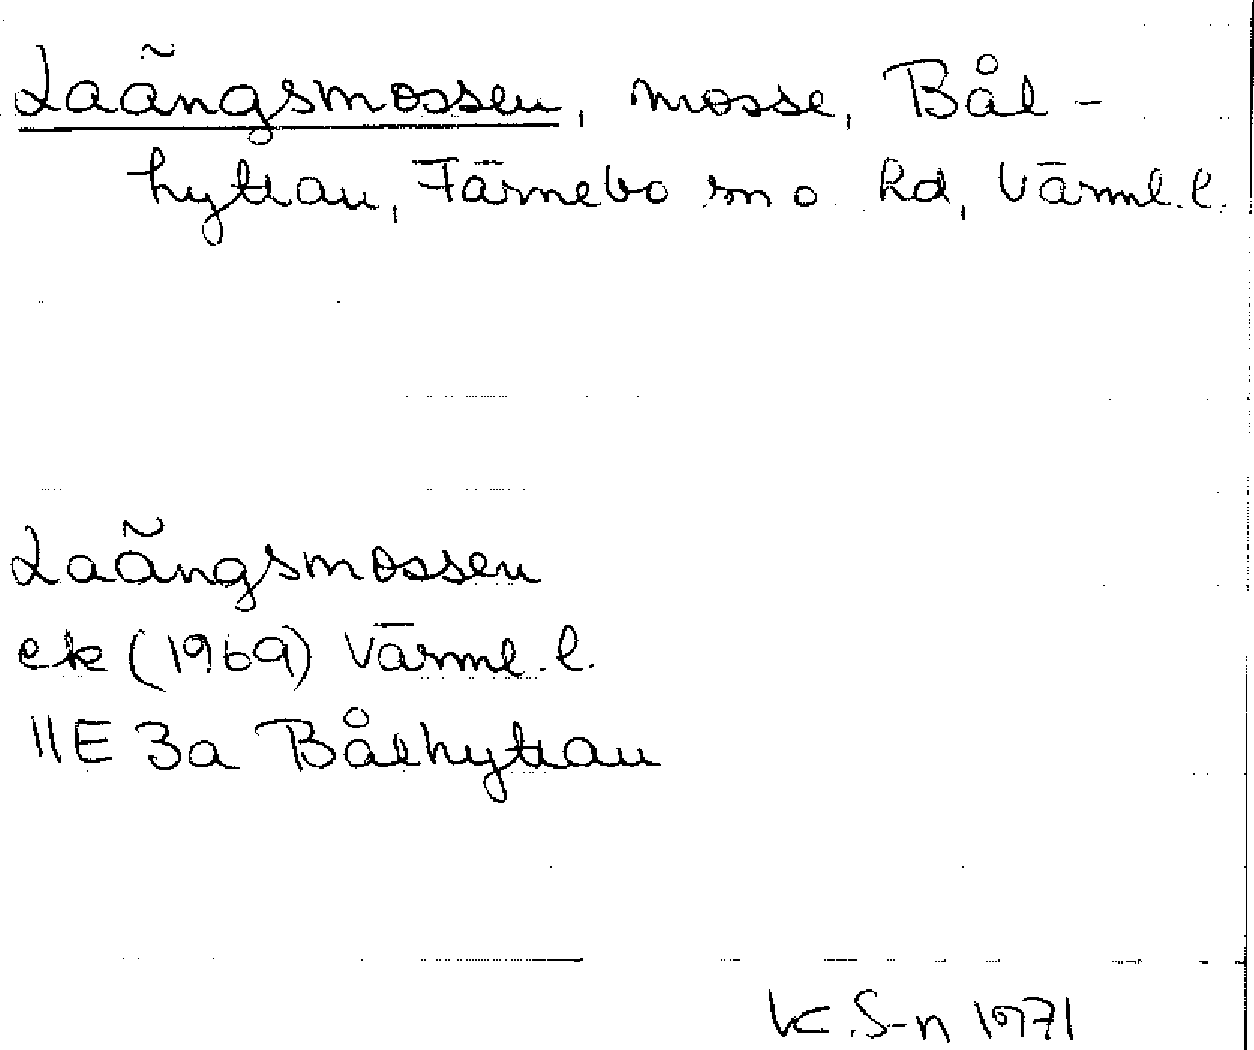 Laängsmossen, mosse, Bål-
hyttan, Färnebo sn o hd, Värml. l.
Laängsmossen
ek (1969) Värml. l.
11E 3a Bålhyttan
K. S-n 1971